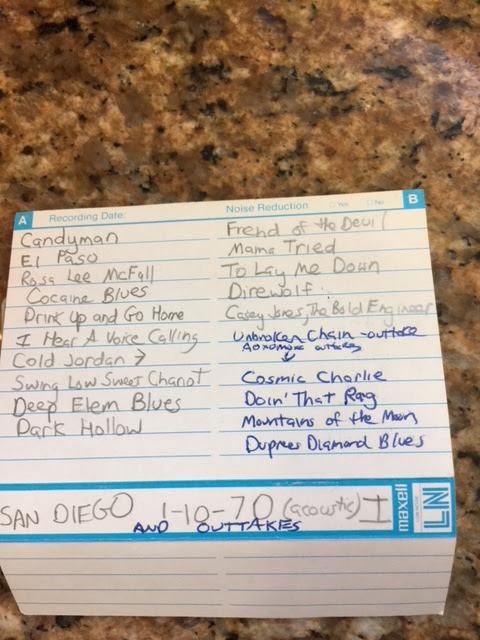 A Recording Date:
Noise Reduction Yes No B
Candyman
El Paso
Rosa Lee McFall
Cocaine Blues
Drink Up and Go Home
I Hear A Voice Calling
Cold Jordan →
Swing Low Sweet Chariot
Deep Elem Blues
Dark Hollow
Frend of the Devil
Mama Tried
To Lay Me Down
Direwolf
Casey Jones, The Bold Engineer
Unbroken Chain - outtake
Aoxomoxoa outtakes
Cosmic Charlie
Doin' That Rag
Mountains of the Moon
Duprees Diamond Blues
SAN DIEGO 1-10-70 (acoustic) I
AND OUTTAKES
maxell
LN